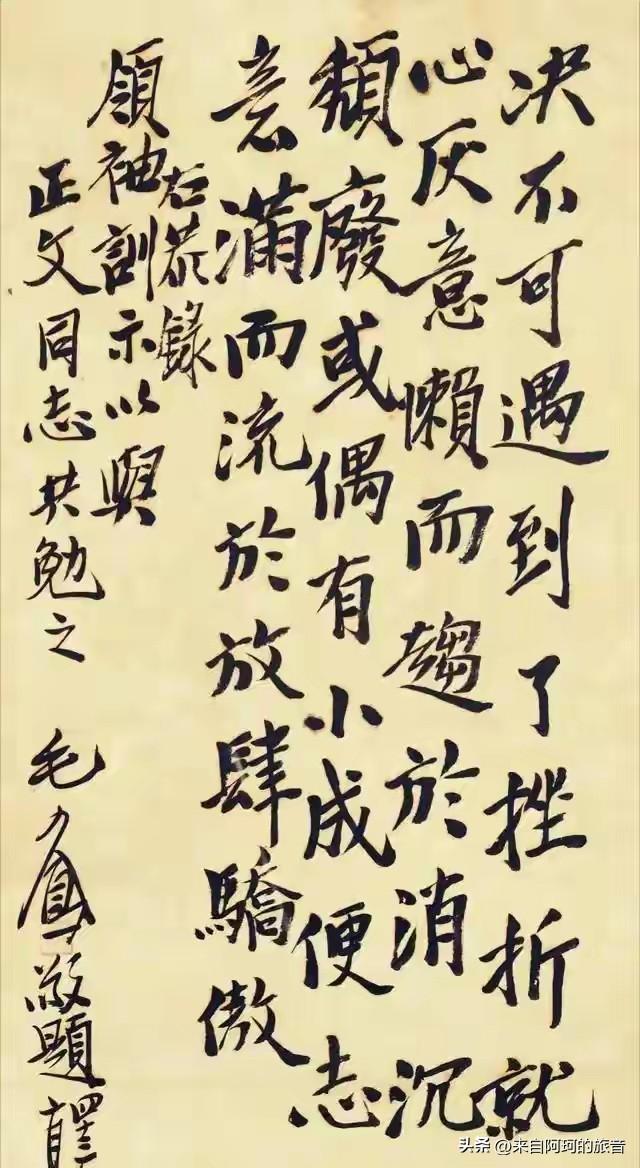 决不可遇到了挫折就
心灰意懶而趨於消沉
頽廢或偶有小成便志
意滿而流於放肆驕傲
右恭錄
領袖訓示以與
正文同志共勉之 毛人鳳敬題
头条 @来自阿珂的旅音